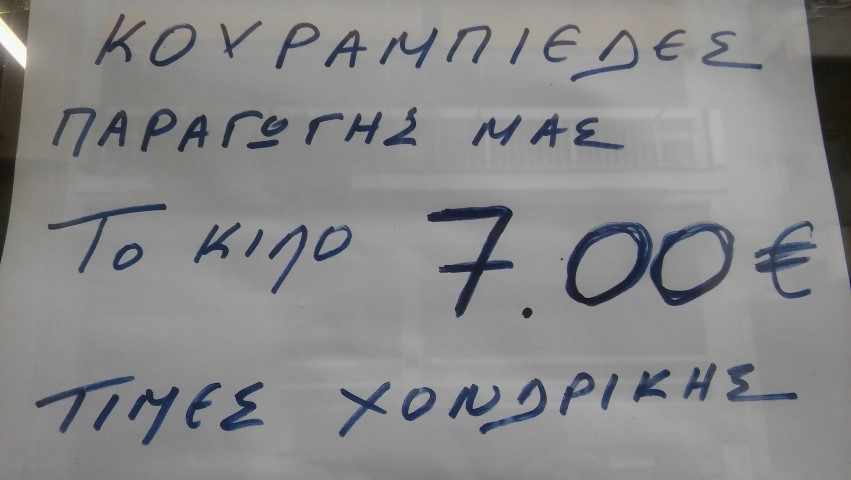 ΚΟΥΡΑΜΠΙΕΔΕΣ
ΠΑΡΑΓΩΓΗΣ ΜΑΣ
ΤΟ ΚΙΛΟ 7.00€
ΤΙΜΕΣ ΧΟΝΔΡΙΚΗΣ